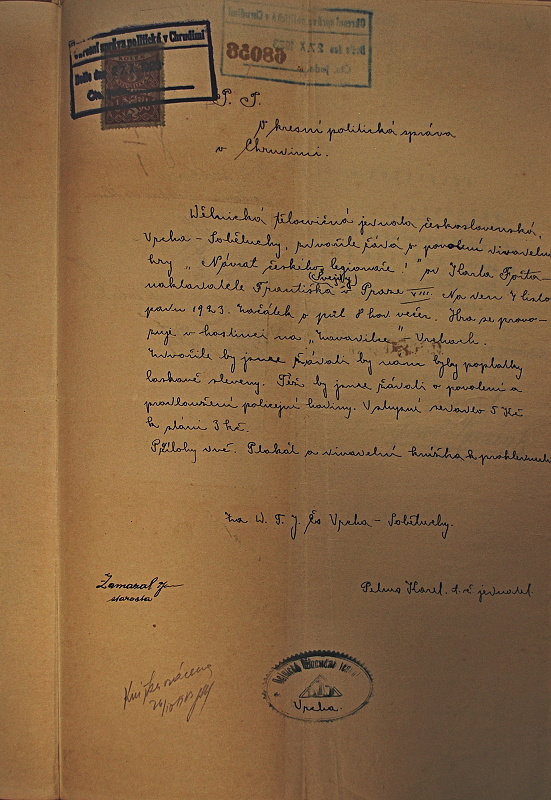 Okresní správa politická v Chrudimi
Došlo dne
Okresní správa politická v Chrudimi
Došlo dne 27. X.
68036
P. T.
Okresní politická správa
v Chrudimi.
Dělnická tělocvičná jednota československá,
Vrcha – Sobětuchy, žádá o povolení divadelní
hry „Návrat českého legionáře!" od Karla
nakladatele Františka v Praze VIII. Na den 4 listo-
padu 1923. Začátek o půl 8 hod večer. Hra se provo-
zuje v hostinci na Vrchách.
by jsme žádali by nám byly poplatky
laskavě sleveny. Též by jsme žádali o povolení a
prodloužení policejní hodiny. Vstupné sedadlo 5 Kč
k stání 3 kč.
Přílohy dvě. Plakát a divadelní knížka k prohlédnutí
Za D. T. J. Čs Vrcha – Sobětuchy.
starosta
Karel. t. č jednatel.
Knížka vrácena
Vrcha.